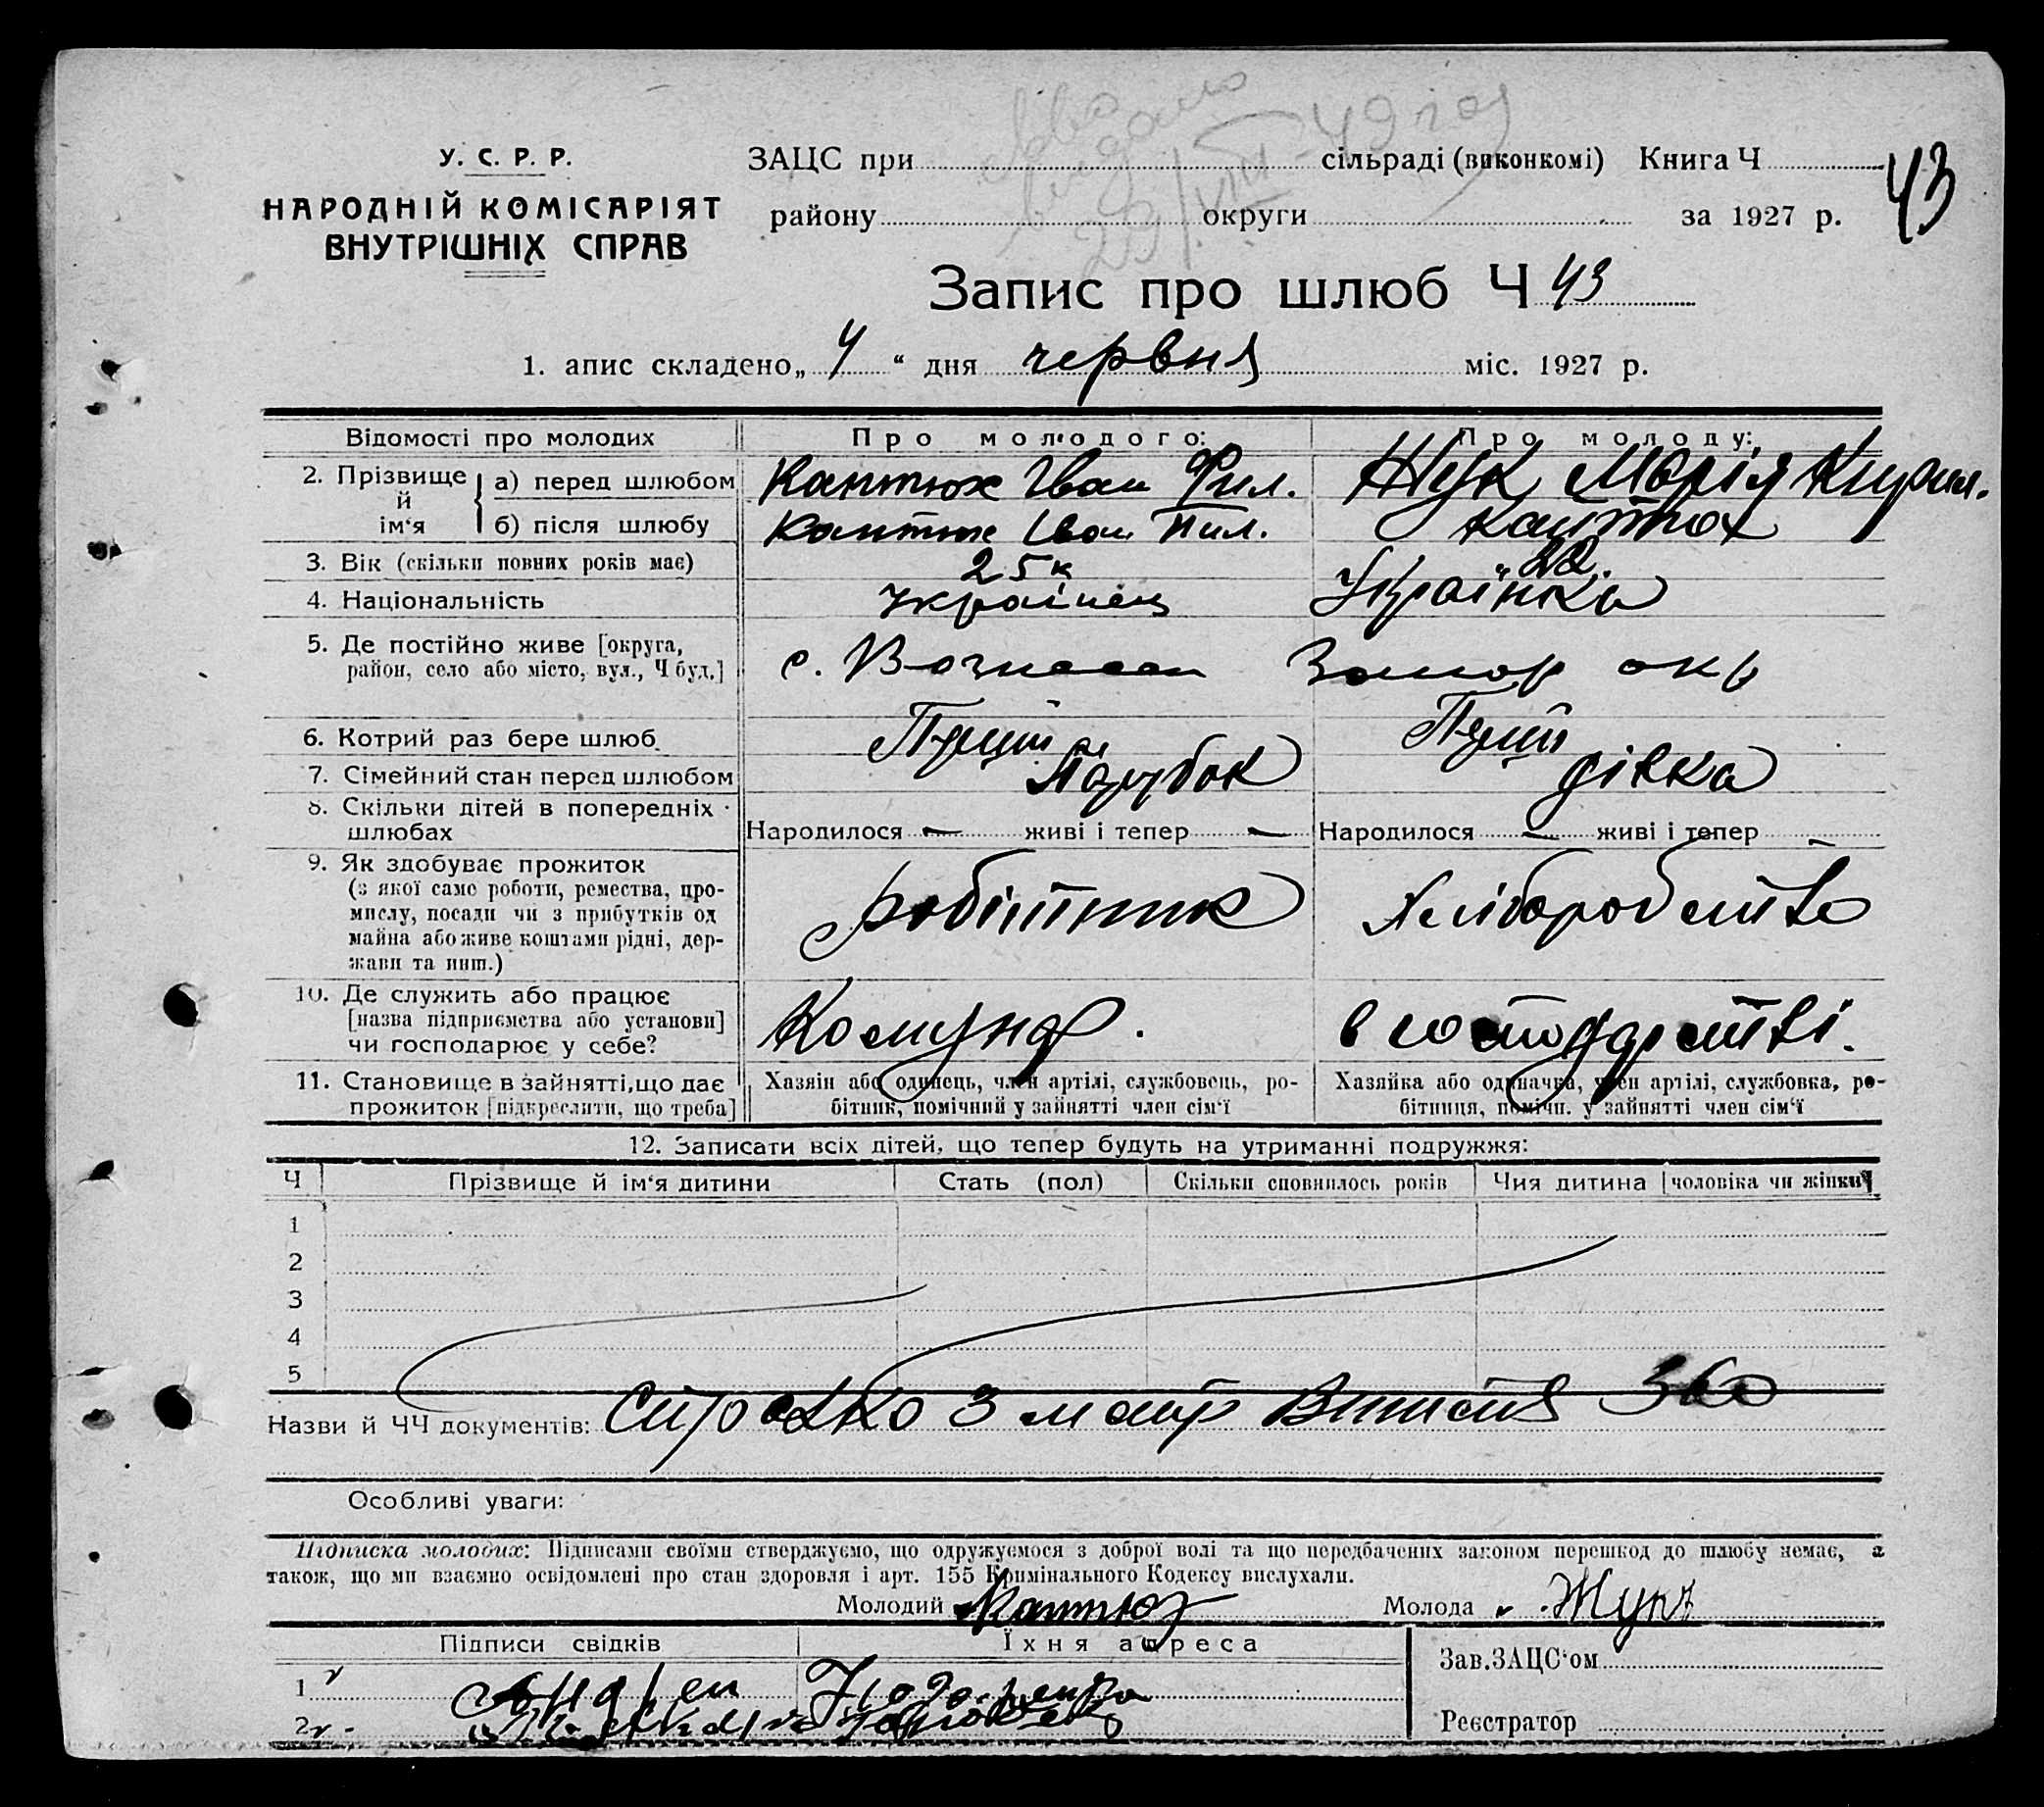 У. С. Р. Р.
НАРОДНІЙ КОМІСАРІЯТ
ВНУТРІШНІХ СПРАВ
ЗАЦС при сільраді (виконкомі) Книга Ч
43
району округи за 1927 р.
Запис про шлюб Ч 43
1. апис складено „ 4 “ дня червня міс. 1927 р.
Відомості про молодих Про молодого: Про молоду:
2. Прізвище й ім‘я а) перед шлюбом Каптюх Іван Фил. Жук Марія Кирил.
б) після шлюбу Каптюх Іван Пил. Каптюх
3. Вік (скільки повних років має) 25 22
4. Національність Українець Українка
5. Де постійно живе [округа,
район, село або місто, вул., Ч буд.] с. Вознесен Запор окр
6. Котрий раз бере шлюб
7. Сімейний стан перед шлюбом Парубок дівка
8. Скільки дітей в попередніх
шлюбах Народилося — живі і тепер — Народилося — живі і тепер
9. Як здобуває прожиток
(з якої саме роботи, ремества, про-
мислу, посади чи з прибутків од
майна або живе коштами рідні, дер-
жави та инш.)
робітник Хліборобство
10. Де служить або працює
[назва підприємства або установи]
чи господарює у себе?
Комунар. в господарстві.
11. Становище в зайнятті, що дає
прожиток [підкреслити, що треба]
Хазяін або одинець, член артілі, службовець, ро-
бітник, помічний у зайнятті член сім‘ї
Хазяйка або одиначка, член артілі, службовка, ро-
бітниця, помічн. у зайнятті член сім‘ї
12. Записати всіх дітей, що тепер будуть на утриманні подружжя:
Ч Прізвище й ім‘я дитини Стать (пол) Скільки сповнилось років Чия дитина [чоловіка чи жінки]
1
2
3
4
5
Назви й ЧЧ документів: З метр
Особливі уваги:
Підписка молодих: Підписами своїми стверджуємо, що одружуємося з доброї волі та що передбачених законом перешкод до шлюбу немає, а
також, що ми взаємно освідомлені про стан здоровля і арт. 155 Кримінального Кодексу вислухали.
Молодий Каптюх Молода Жук
Підписи свідків Їхня адреса
Зав.ЗАЦС‘ом
1
2
Реєстратор